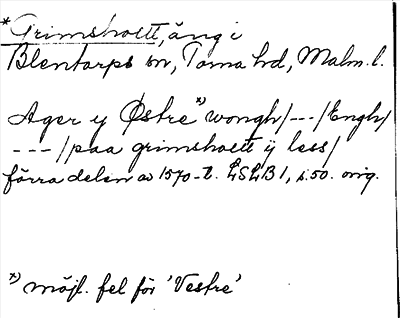 *Grimshoett, äng i
Blentarps sn, Torna hd, Malm. l.
Ager y Østre *) wongh/---/Engh/
---/paa grimshoett ÿ less/
förra delen av 1570-t. LSLB 1, s. 50. orig.
*) möjl. fel för 'Vestre'